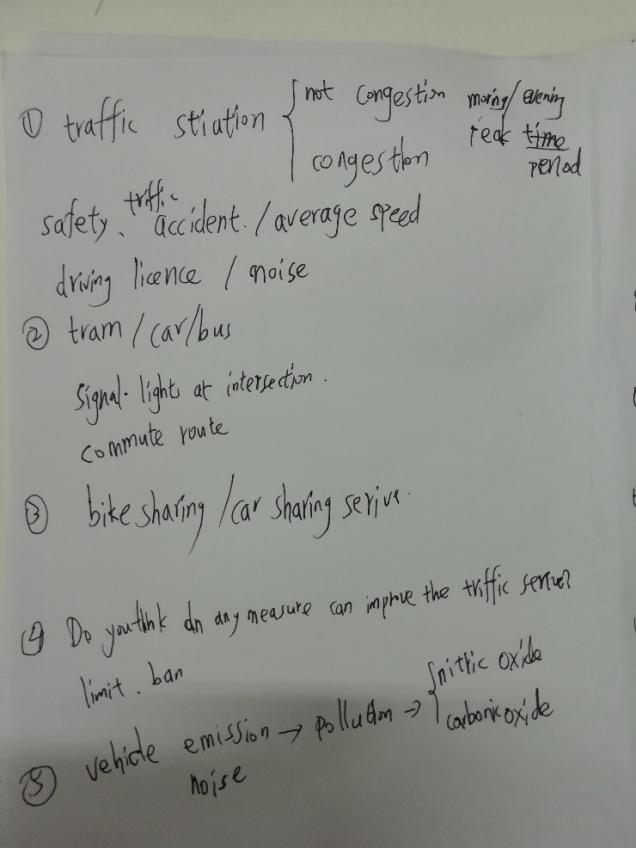 ① traffic stiation { not congestion moring/evening
congestion reak time
period
safety、 triffic accident. / average speed
driving licence / noise
② tram / car/bus
Signal-light at intersection.
commute route
③ bike sharing / car sharing serive.
④ Do you think any measure can improve the triffic
limit. ban
⑤ vehicle emission → pollution → { nitric oxide
carbonic oxide
noise